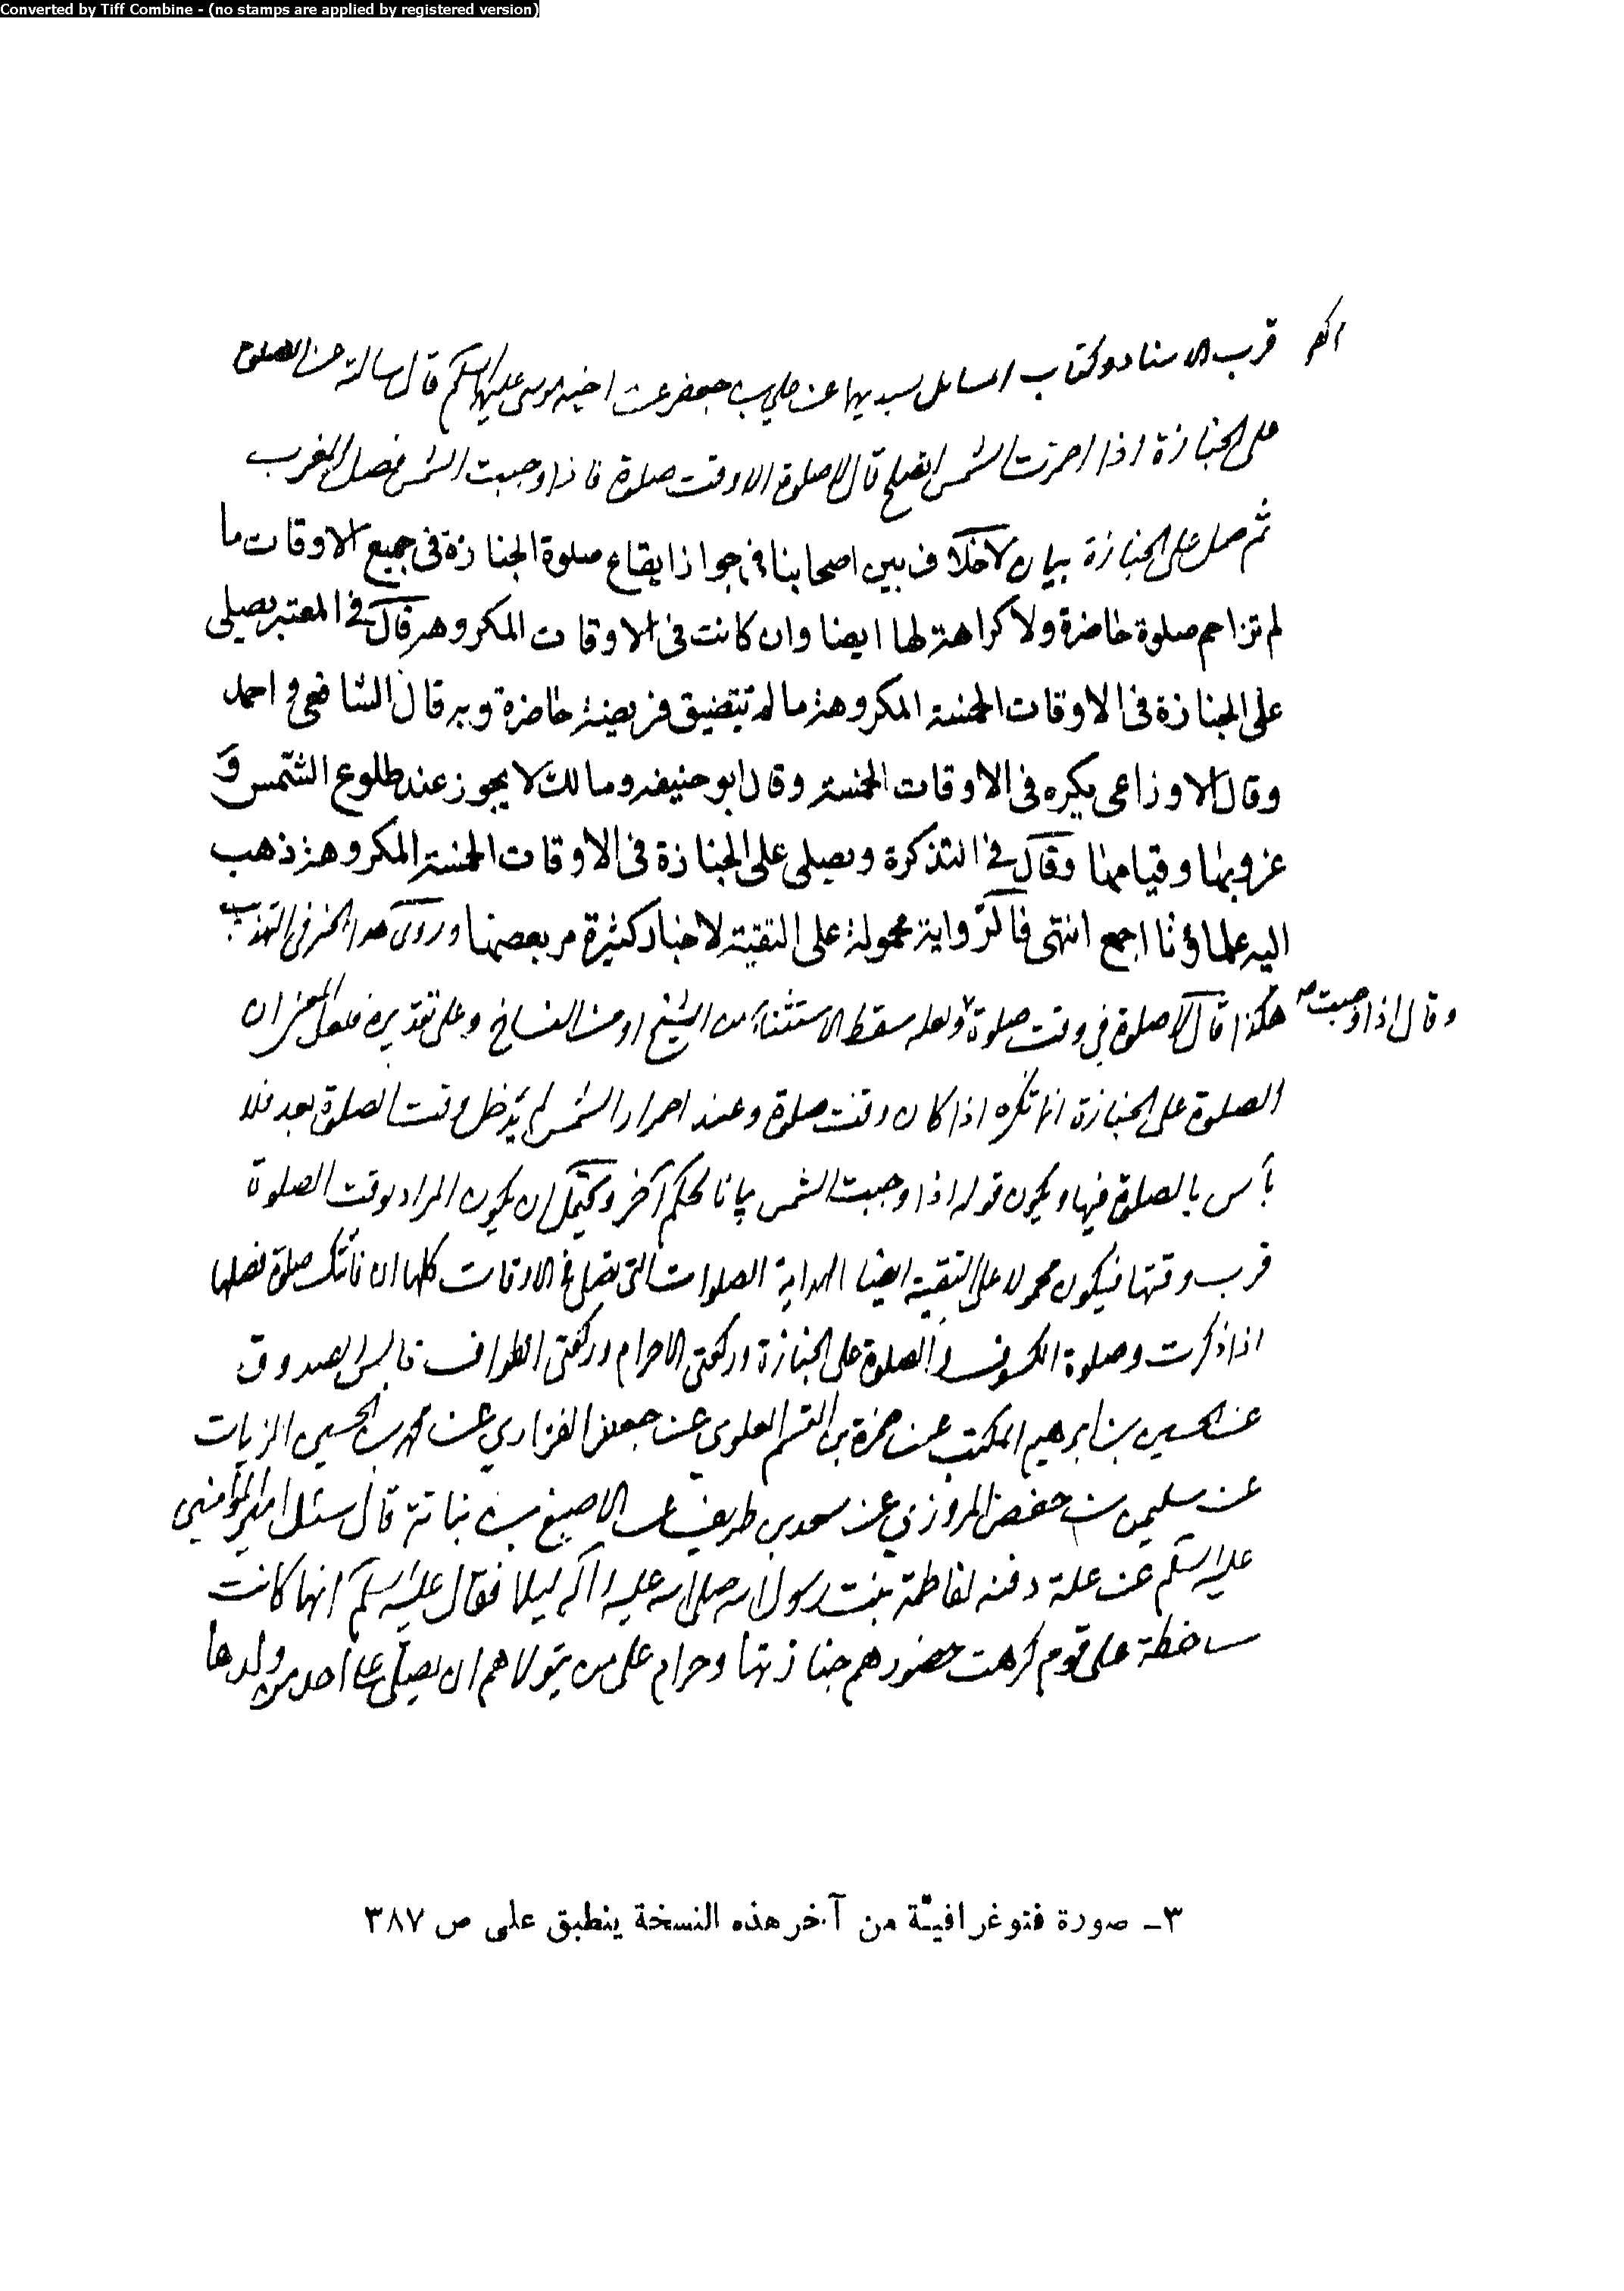 Converted by Tiff Combine - (no stamps are applied by registered version)
قرب الاسناد وكتاب المسائل بسنديهما عن علي بن جعفر عن اخيه موسى عليهما السلم قال سالته عن الصلوة
على الجنازة اذا احمرت الشمس ايصلح قال لا صلوة الا وقت صلوة فاذا وجبت الشمس فصل المغرب
ثم صل على الجنازة بيان لا خلاف بين اصحابنا في جواز ايقاع صلوة الجنازة في جميع الاوقات ما
لم تزاحم صلوة حاضرة ولا كراهة لها ايضا وان كانت في الاوقات المكروهة قال في المعتبر يصلى
على الجنازة في الاوقات الخمسة المكروهة ما لم تتضيق فريضة حاضرة وبه قال الشافعي و احمد
وقال الاوزاعى يكره في الاوقات الخمسة وقال ابو حنيفه ومالك لا يجوز عند طلوع الشمس و
غروبها وقيامها وقال في التذكرة ويصلى على الجنازة في الاوقات الخمسة المكروهة ذهب
اليه علماؤنا اجمع انتهى فالرواية محمولة على التقية لاخبار كثيرة مر بعضها وروى هذا الخبر في التهذيب
هكذا قال لا صلوة في وقت صلوة ولعله سقط الاستثناء من الشيخ او من النساخ وعلى تقديره فلعل المعنى ان
وقال اذا وجبت
الصلوة على الجنازة انما تكره اذا كان وقت صلوة وعند احمرار الشمس لم يدخل وقت الصلوة بعد فلا
بأس بالصلوة فيها ويكون قوله اذا وجبت الشمس بيانا لحكم آخر ويحتمل ان يكون المراد بوقت الصلوة
قرب وقتها فيكون محمولا على التقية ايضا الهداية الصلوات التى تصلى في الاوقات كلها ان فاتتك صلوة فصلها
اذا ذكرت وصلوة الكسوف والصلوة على الجنازة وركعتى الاحرام وركعتى الطواف مجالس الصدوق
عن الحسين بن ابرهيم المكتب عن حمزة بن القسم العلوي عن جعفر الفزاري عن محمد بن الحسين الزيات
عن سليمن بن حفص المروزي عن سعد بن طريف عن الاصبغ بن نباتة قال سئل امير المؤمنين
عليه السلم عن علة دفنه لفاطمة بنت رسول الله صلى الله عليه وآله ليلا فقال عليه السلم انها كانت
ساخطة على قوم كرهت حضورهم جنازتها وحرام على من يتولاهم ان يصلى على احد من ولدها
٣ـ صورة فتوغرافيّة من آخر هذه النسخة ينطبق على ص ٣٨٧